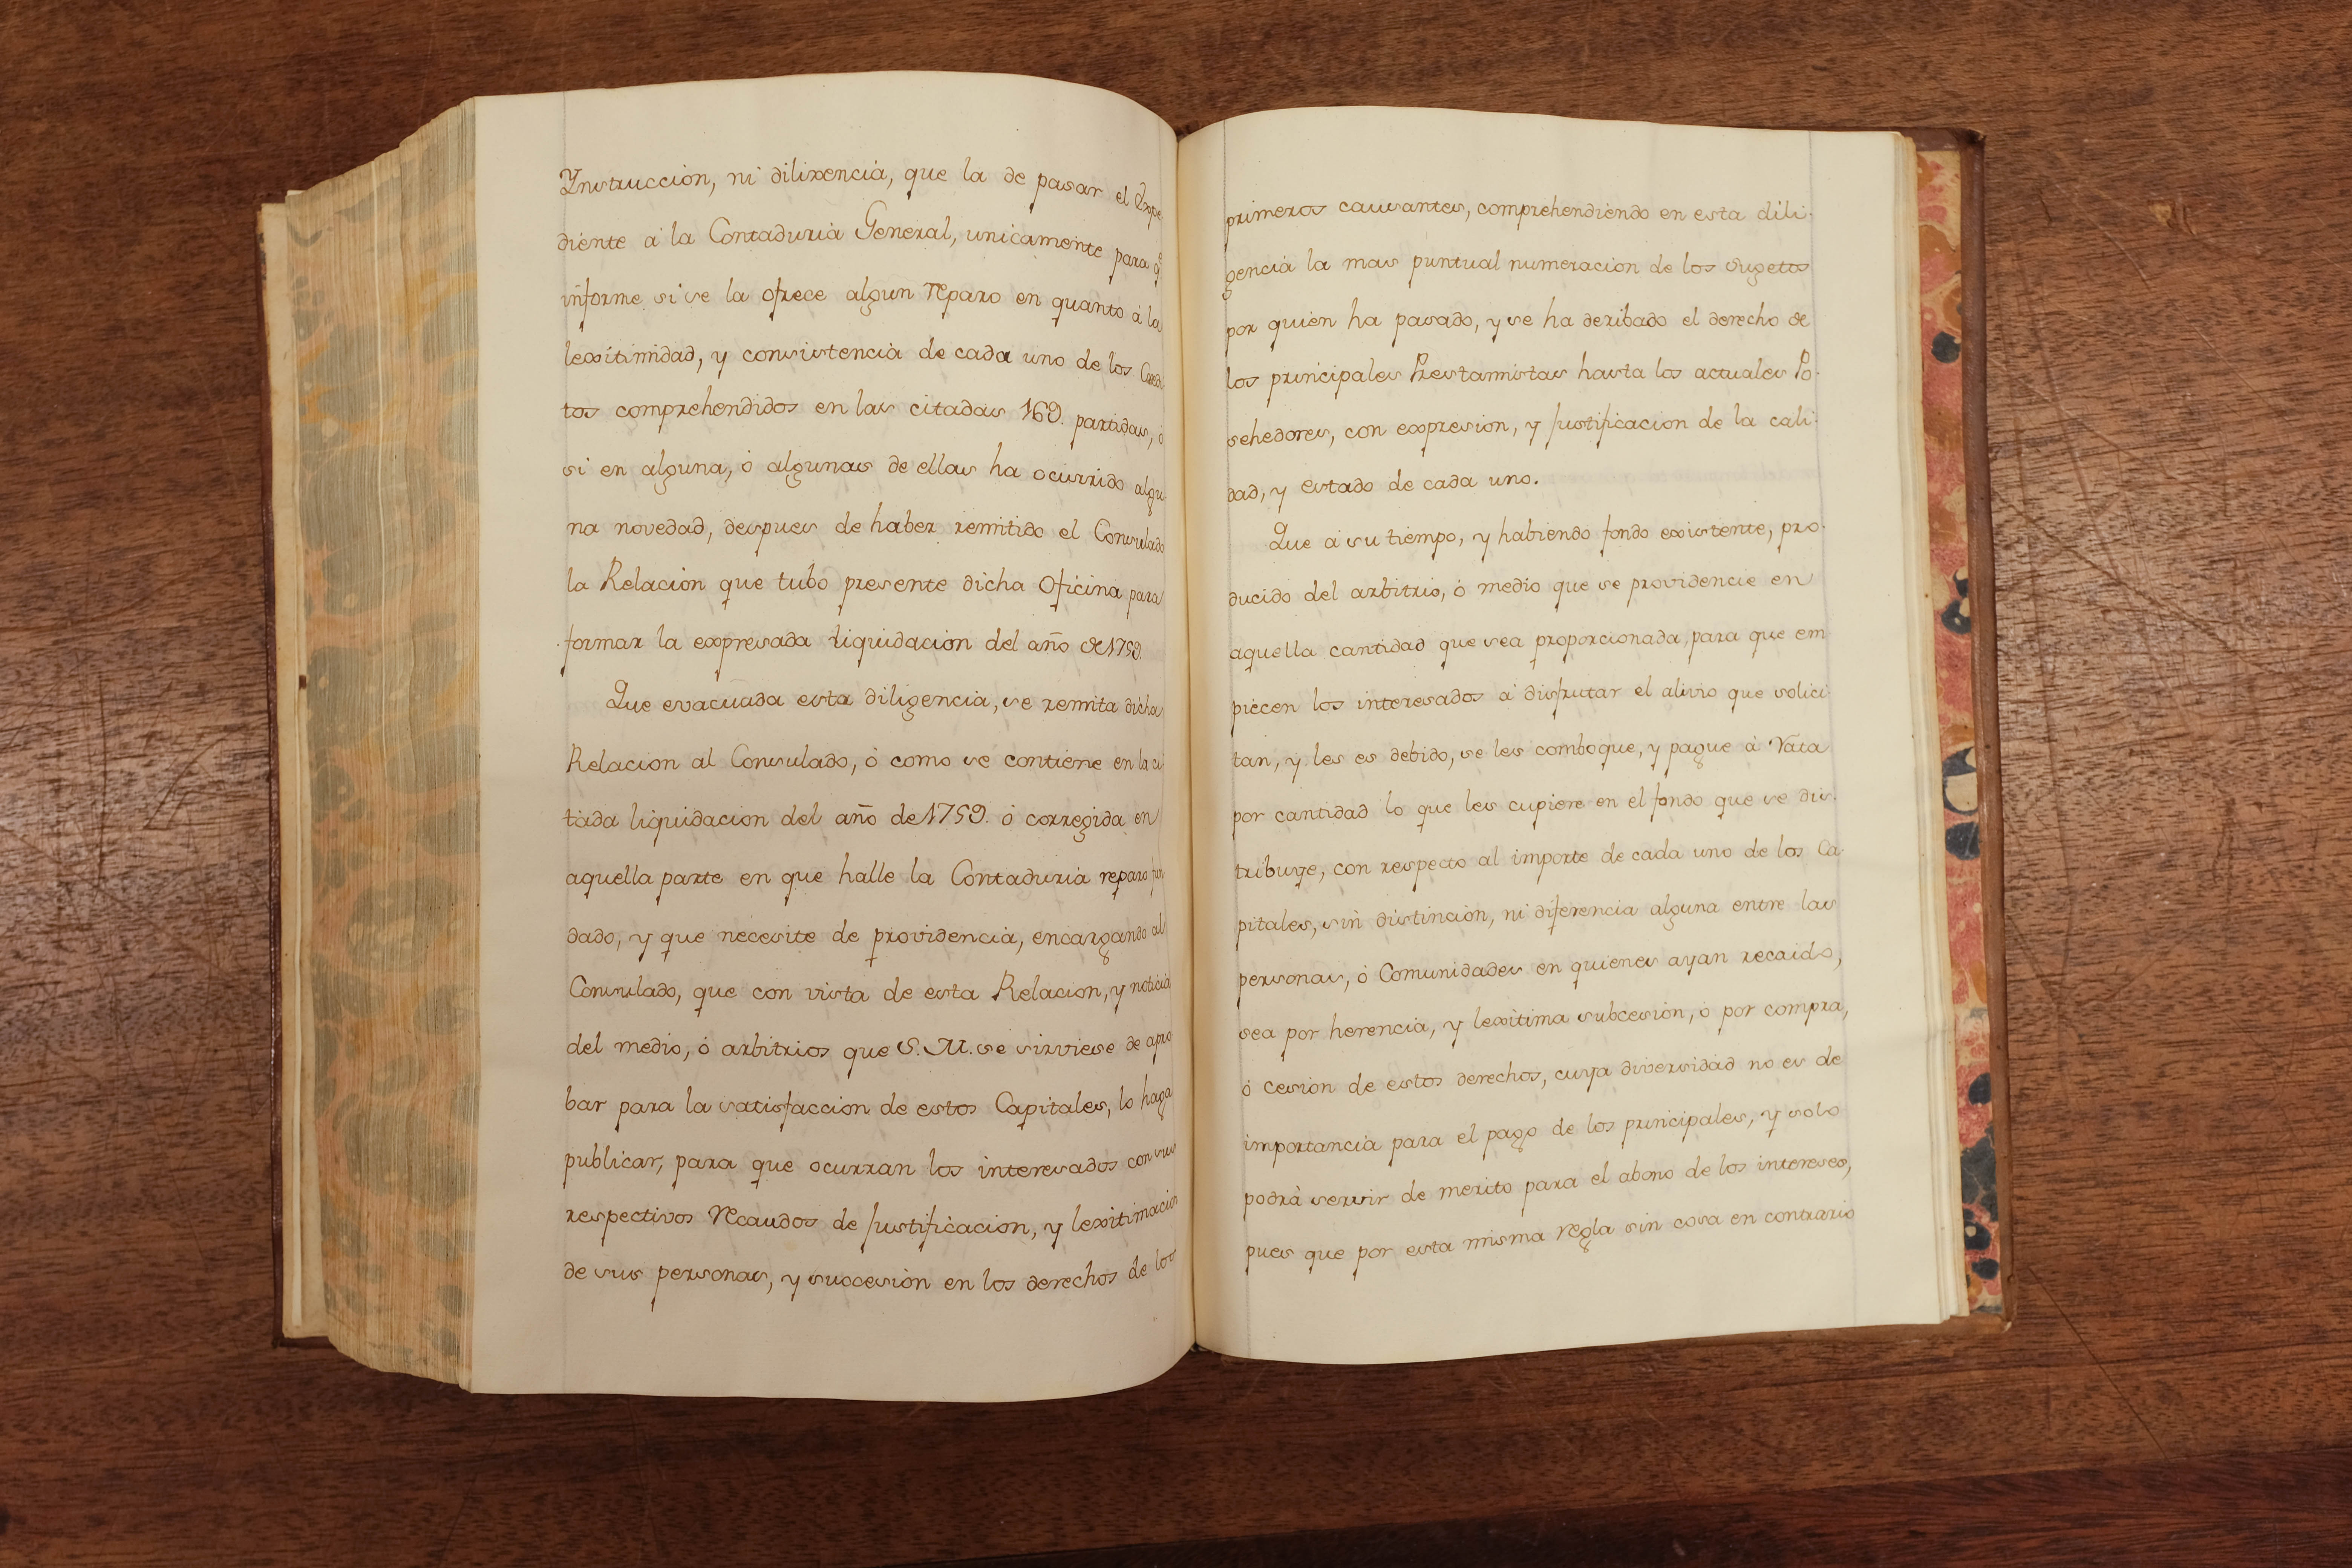 Ynstruccion, ni dilixencia, que la de pasar el Expe
diente á la Contaduria General, unicamente para q.e
informe si se la ofrece algun reparo en quanto á la
lexitimidad, y consistencia de cada uno de los Credi
tos comprehendidos en las citadas 169. partidas, ó
si en alguna, ó algunas de ellas ha ocurrido algu
na novedad, despues de haber remitido el Consulado
la Relacion que tubo presente dicha Oficina para
formar la expresada liquidacion del año de 1759.
Que evacuada esta diligencia, se remita dicha
Relacion al Consulado, ó como se contiene en la ci
tada liquidacion del año de 1759. ó corregida en
aquella parte en que halle la Contaduria reparo fun
dado, y que necesite de providencia, encargando al
Consulado, que con vista de esta Relacion, y noticia
del medio, ó arbitrios que S. M. se sirviese de apro
bar para la satisfaccion de estos Capitales, lo haga
publicar, para que ocurran los interesados con sus
respectivos recaudos de justificacion, y lexitimacion
de sus personas, y succesion en los derechos de los
primeros causantes, comprehendiendo en esta dili-
gencia la mas puntual numeracion de los sugetos
por quien ha pasado, y se ha deribado el derecho de
los principales Prestamistas hasta los actuales Po-
sehedores, con expresion, y justificacion de la cali-
dad, y estado de cada uno.
Que á su tiempo, y habiendo fondo existente, pro-
ducido del arbitrio, ó medio que se providencie en
aquella cantidad que sea proporcionada, para que em
piecen los interesados á disfrutar el alivio que solici
tan, y les es debido, se les comboque, y pague á rata
por cantidad lo que les cupiere en el fondo que se dis-
tribuye, con respecto al importe de cada uno de los Ca-
pitales, sin distincion, ni diferencia alguna entre las
personas, ó Comunidades en quienes ayan recaido,
sea por herencia, y lexitima subcesion, ó por compra,
ó cesion de estos derechos, cuya diversidad no es de
importancia para el pago de los principales, y solo
podrá servir de merito para el abono de los intereses,
pues que por esta misma regla sin cosa en contrario